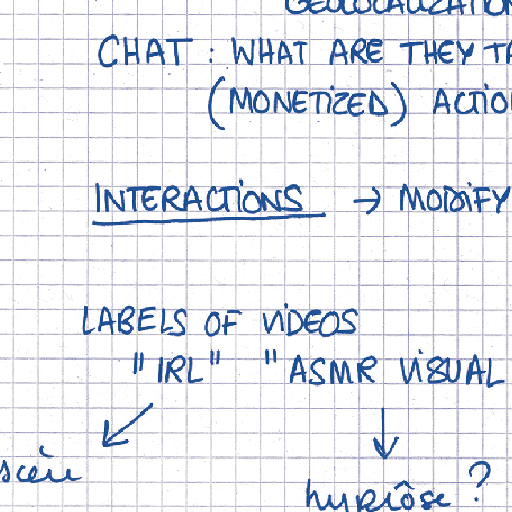 GEOLOCALIZATION
CHAT : WHAT ARE THEY TA
(MONETIZED) ACTIO
INTERACTIONS → MODIFY
LABELS OF VIDEOS
"IRL" "ASMR VISUAL
?